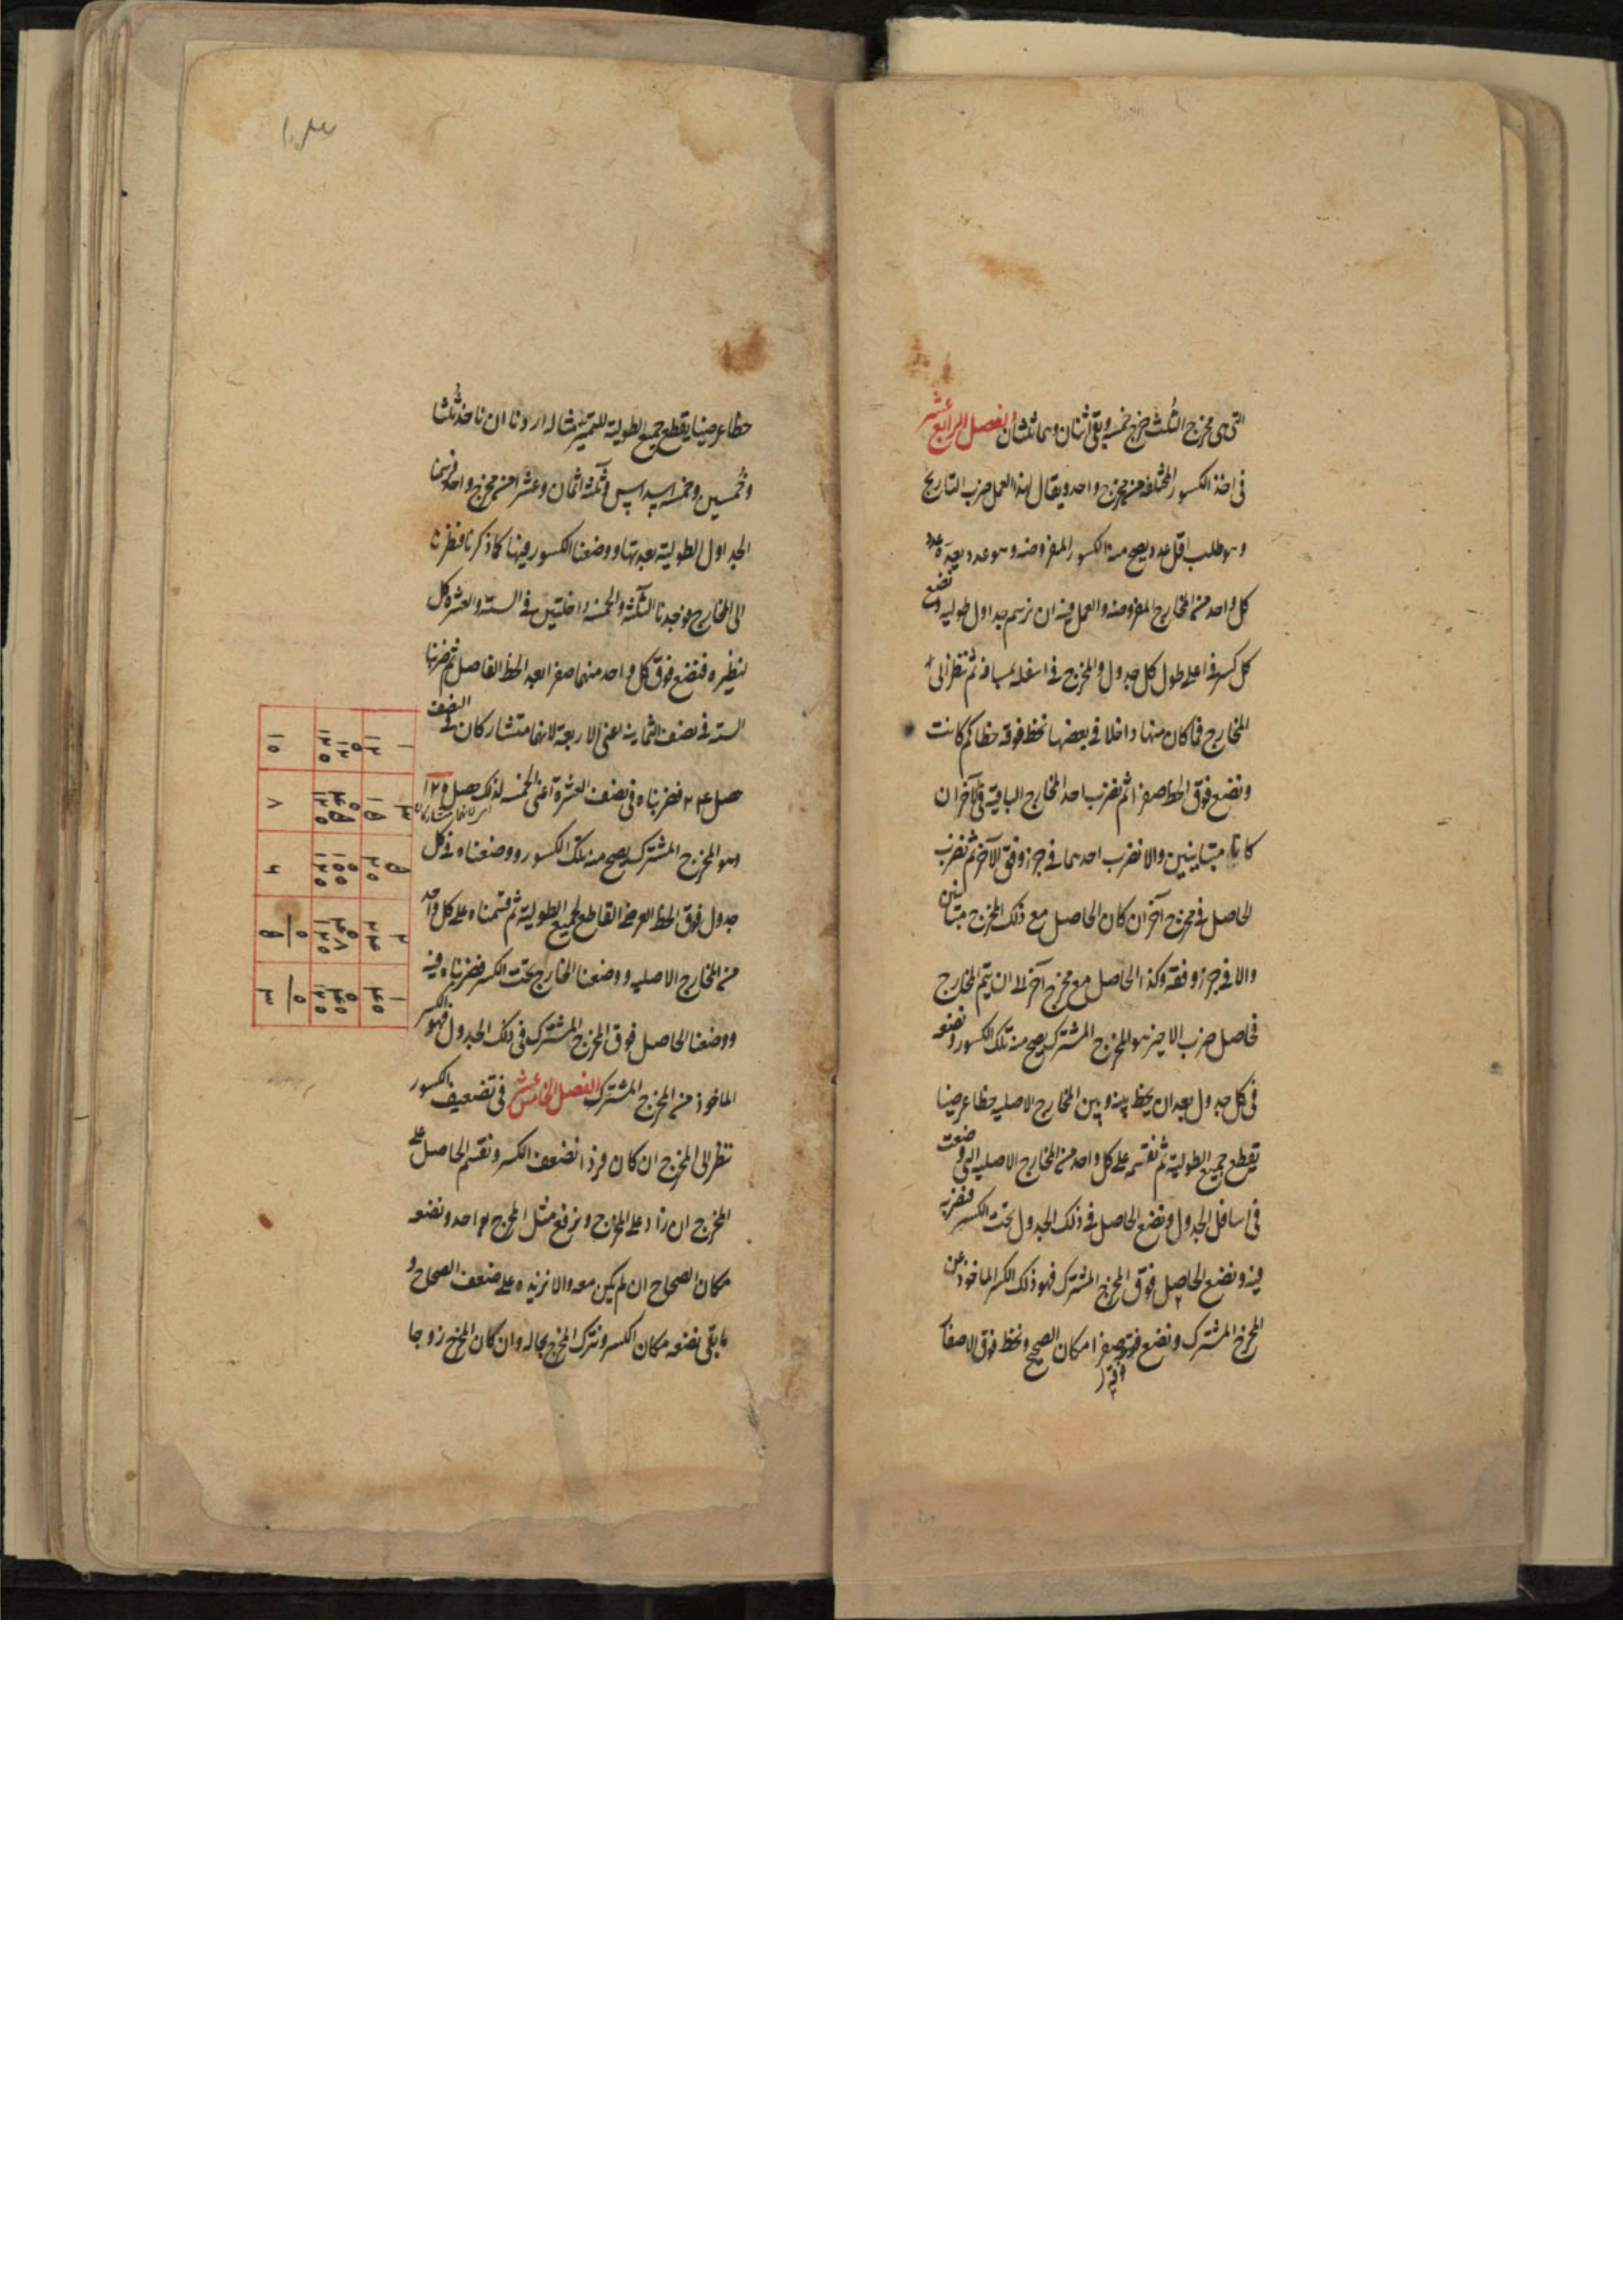 التى هى مخرج الثلث خرج خمسة وبقى اثنان وهما ثلثان الفصل الرابع عشر
فى اخذ الكسور المختلفة من مخرج واحد ويقال لهذا العمل ضرب التاريخ
وهو طلب اقل عدد يصح منه الكسور المفروضة وهو عدد يعده عدد
كل واحد من المخارج المفروضة والعمل فيه ان نرسم جداول طولية ونضع
كل كسر فى اعلى طول كل جدول والمخرج فى اسفله بمسافة ثم ننظر الى
المخارج فما كان منها داخلا فى بعضها نخط فوقه خطا كم كانت
ونضع فوق الخط صفرا ثم نضرب احد المخارج الباقية فى الآخر ان
كانا متباينين والا نضرب احدهما فى جزء وفق الآخر ثم نضرب
الحاصل فى مخرج آخر ان كان الحاصل مع ذلك المخرج متباينين
والا فى جزء وفقه وكذا الحاصل مع مخرج آخر الى ان يتم المخارج
فحاصل ضرب الاخير هو المخرج المشترك يصح منه تلك الكسور ونضعه
فى كل جدول بعد ان نخط بينه وبين المخارج الاصلية خطا عرضيا
يقطع جميع الطولية ثم نقسمه على كل واحد من المخارج الاصلية التى وضعت
فى اسافل الجدول ونضع الحاصل فى ذلك الجدول تحت الكسر فنضربه
فيه ونضع الحاصل فوق المخرج المشترك فهو ذلك الكسر الماخوذ من
المخرج المشترك ونضع فوقه صفرا مكان الصحيح ونخط فوق الاصفار
خطا عرضيا يقطع جميع الطولية للتميز مثاله اردنا ان ناخذ ثلثا
وخمسين وخمسة اسداس وثلثة اثمان وعشرا من مخرج واحد فرسمنا
الجداول الطولية بعدتها ووضعنا الكسور فيها كما ذكرنا فنظرنا
الى المخارج فوجدنا الثلثة والخمسة داخلتين فى الستة والعشرة كل
لنظيره فنضع فوق كل واحد منهما صفرا بعد الخط الفاصل ثم ضربنا
الستة فى نصف الثمانية اعنى الاربعة لانهما متشاركان فى النصف
حصل ٢٤ فضربناه فى نصف العشرة اعنى الخمسة لذلك حصل ١٢٠
وهو المخرج المشترك يصح منه تلك الكسور ووضعناه فى كل
جدول فوق الخط العرضى القاطع لجميع الطولية ثم قسمناه على كل واحد
من المخارج الاصلية ووضعنا الخارج تحت الكسر فضربناه فيه
ووضعنا الحاصل فوق المخرج المشترك فى ذلك الجدول فهو الكسر
الماخوذ من المخرج المشترك الفصل الخامس عشر فى تضعيف الكسور
ننظر الى المخرج ان كان فردا نضعف الكسر ونقسم الحاصل على
المخرج ان زاد على المخرج ونرفع مثل المخرج بواحد ونضعه
مكان الصحاح ان لم يكن معه والا نزيده على ضعف الصحاح و
ما بقى نضعه مكان الكسر ونترك المخرج بحاله وان كان المخرج زوجا